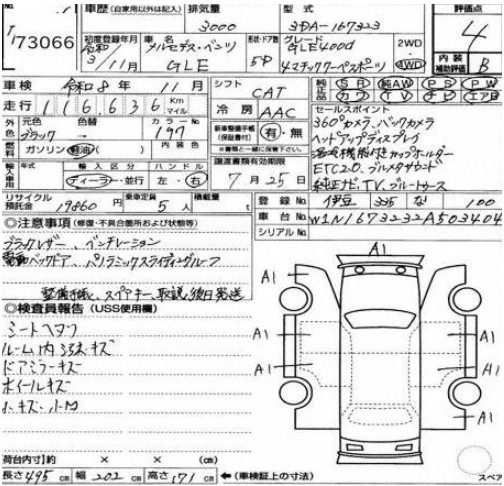 車歴 (自家用以外は記入) 排気量 型式 評価点
3000 3DA-167323 4
73066
初度登録年月 車名 形状・ドア数 グレード 2WD 4WD
令和 3/11月 メルセデス・ベンツ GLE 5D GLE400d 4マチックワーゲスポーツ
内装補助評価 B
車検 令和8年 11月 シフト CAT
純正品 SR 純AW PS PW カワ TV ナビ エアB
走行 116,636 Km マイル 冷房 AAC
セールスポイント
外色 元色 色替 カラーNo
ブラック → 197
新車整備手帳 (保証書付) 有・無
360°カメラ、バックカメラ
ヘッドアップディスプレイ
燃料 ガソリン 軽油 ( ) 内装色
※書類と一緒に保管下さい。
カップホルダー
輸入車用 年式 輸入区分 ハンドル
ディーラー・並行 左・右
譲渡書有効期限
7月25日
ETC2.0、ブルメタサウンド
純正ナビ、TV、ブルートゥース
リサイクル預託金 19860円 乗車定員 5人 積載量 t
登録No. 伊豆 335 な 100
車台No. W1N1673232A503404
シリアルNo.
◎注意事項 (修復・不具合箇所および状態等)
ブラックレザー、ベンチレーション
電動バックドア、パノラミックスライディングルーフ
整備手帳、スペアキー、取説、後日発送
◎検査員報告 (USS使用欄)
シートヘタリ
ルーム内
ドアミラーキズ
ホイールキズ
小キズ、小凹
A1
A1
A1
A1
A1
A1
A1
A1
荷台内寸 約 × × (cm)
長さ 495 cm 幅 202 cm 高さ 171 cm ←(車検証上の寸法)
スペア